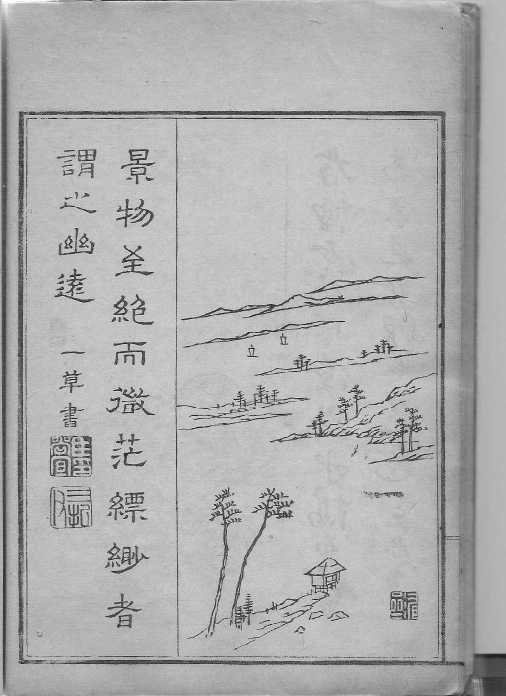 景物至絶而微茫縹緲者
謂之幽遠
一草書